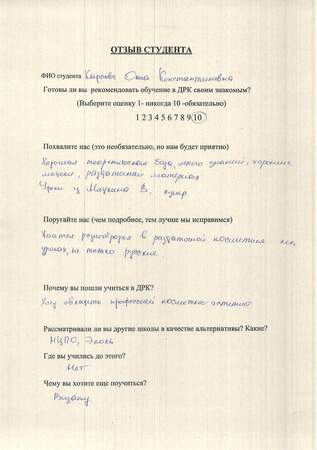 ОТЗЫВ СТУДЕНТА
ФИО студента Карпова Ольга Константиновна
Готовы ли вы рекомендовать обучение в ДРК своим знакомым?
(Выберите оценку 1- никогда 10 -обязательно)
1 2 3 4 5 6 7 8 9 10
Похвалите нас (это необязательно, но нам будет приятно)
Хорошая теоретическая база, много знаний, хорошие
модели, раздаточный материал
Уроки у В. супер
Поругайте нас (чем подробнее, тем лучше мы исправимся)
Хочется разнообразия в раздаточной косметике на
уроках, не только русская
Почему вы пошли учиться в ДРК?
Хочу овладеть профессией косметик-эстетист
Рассматривали ли вы другие школы в качестве альтернативы? Какие?
НЦПО, Эколь
Где вы учились до этого?
Нет
Чему вы хотите еще поучиться?
Визажу